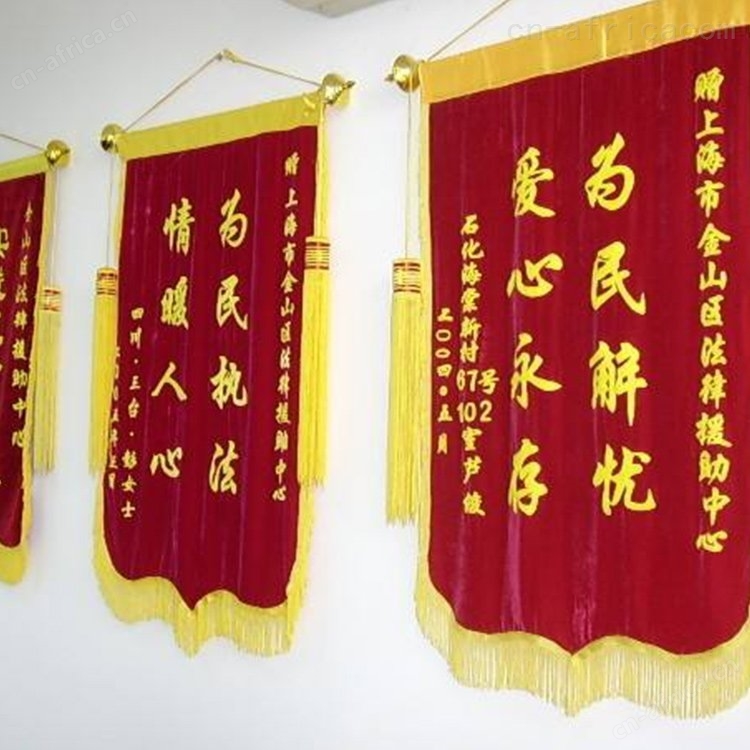 赠上海市金山区法律援助中心
为民解忧
爱心永存
石化海棠新村67号102室芦绫
二〇〇四·五月
赠上海市金山区法律援助中心
为民执法
情暖人心
四川·三台·彭女士
金山区法律援助中心
cn-africa.cn
cn-africa.com